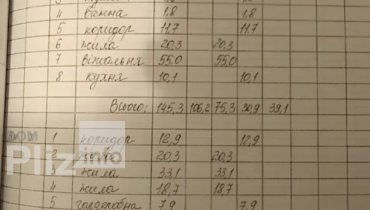 4 ванна 1,8 1,8
5 коридор 11,7 11,7
6 жила 20,3 20,3
7 вітальня 55,0 55,0
8 кухня 10,1 10,1
Всього: 145,3 106,2 75,3 30,9 39,1
1 коридор 12,9 12,9
2 жила 20,3 20,3
3 жила 33,1 33,1
4 жила 18,7 18,7
5 гардеробна 7,9 7,9
DOM
Pliz info